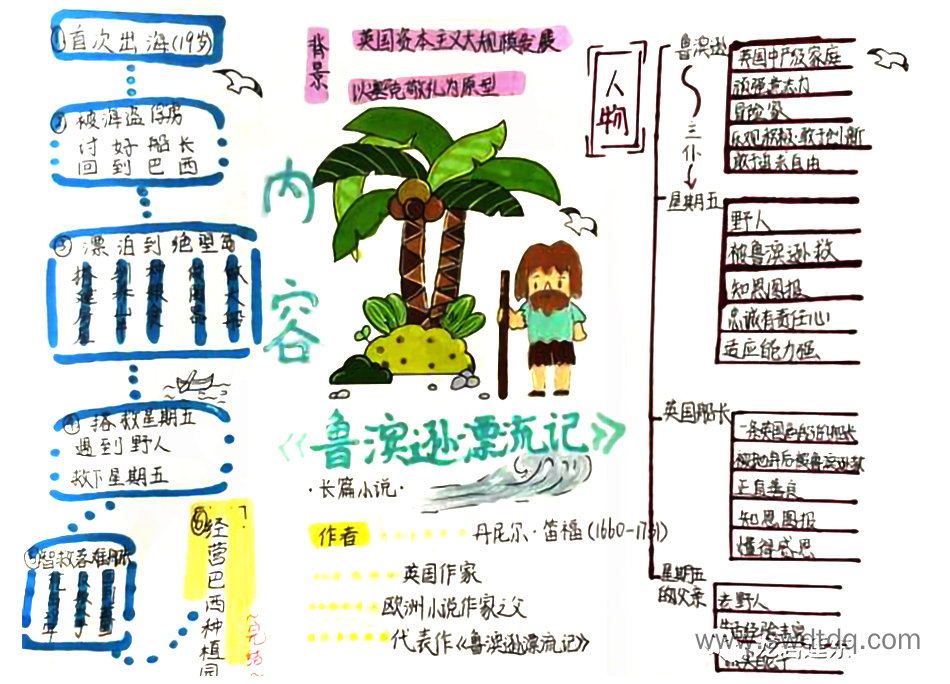 ①首次出海(19岁)
②被海盗俘虏
讨好船长
回到巴西
③漂泊到绝望岛
搭建房屋
种粮食
做大船
④拯救星期五
遇到野人
救下星期五
⑤智救落难船
⑥经营巴西种植园
~完结
内容
背景
英国资本主义大规模发展
以塞克尔为原型
《鲁滨逊漂流记》
·长篇小说·
作者
丹尼尔·笛福(1660-1731)
英国作家
欧洲小说作家之父
代表作《鲁滨逊漂流记》
人物
鲁滨逊
英国中产级家庭
顽强意志力
冒险家
乐观积极·敢于创新
敢于追求自由
主仆
星期五
野人
被鲁滨逊救
知恩图报
忠诚有责任心
适应能力强
英国船长
一条英国船的船长
正直善良
知恩图报
懂得感恩
星期五
的父亲
老野人
www.swdtdq.com